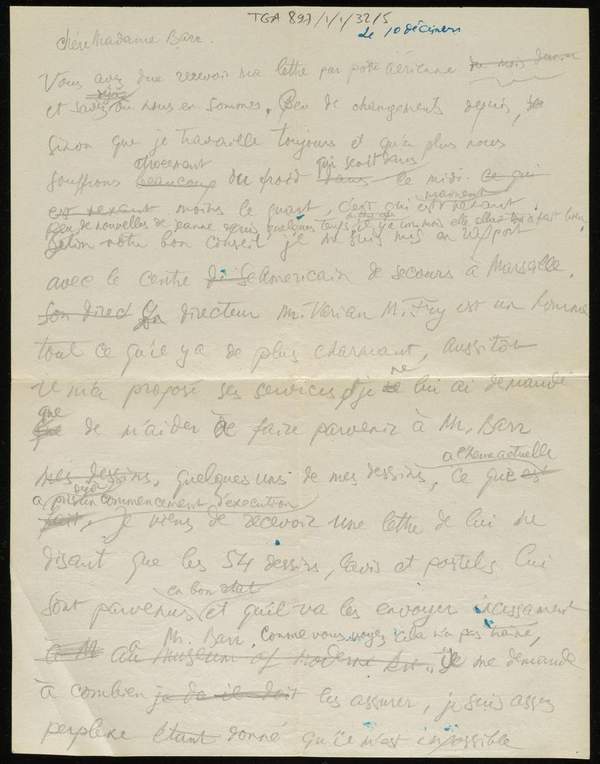 TGA 897/1/1/32/5
le 10 décembre
Chère Madame Barr.
Vous avez due recevoir ma lettre par poste aérienne du mois dernier
déjà
et savez où nous en sommes. Peu de changements depuis,
sinon que je travaille toujours et qu'en plus nous
souffrons beaucoup du froid dans le midi. ce qui
est moins le quart, c'est qui est
peu de nouvelles de Jeanne depuis quelques temps, il y a un mois elle allait tout à fait bien
Selon votre bon conseil je me suis mis en rapport
avec le Centre américain de secours à Marseille.
Son direct Son directeur Mr. Varian M. Fry est un homme
tout ce qu'il y a de plus charmant, aussitôt
il m'a proposé ses services, je ne lui ai demandé
que
de m'aider de faire parvenir à Mr. Barr
à l'heure actuelle
mes dessins, quelques uns de mes dessins, ce qui est
déjà
a pris un commencement d'execution
fait, je viens de recevoir une lettre de lui me
disant que les 54 dessins, lavis et pastels lui
en bon état
sont parvenus et qu'il va les envoyer incessament
Mr. Barr, comme vous voyez cela n'a pas traîné,
à M au Museum of Moderne Art, il me demande
à combien je de il doit les assurer, je suis assez
perplexe étant donné qu'il n'est impossible